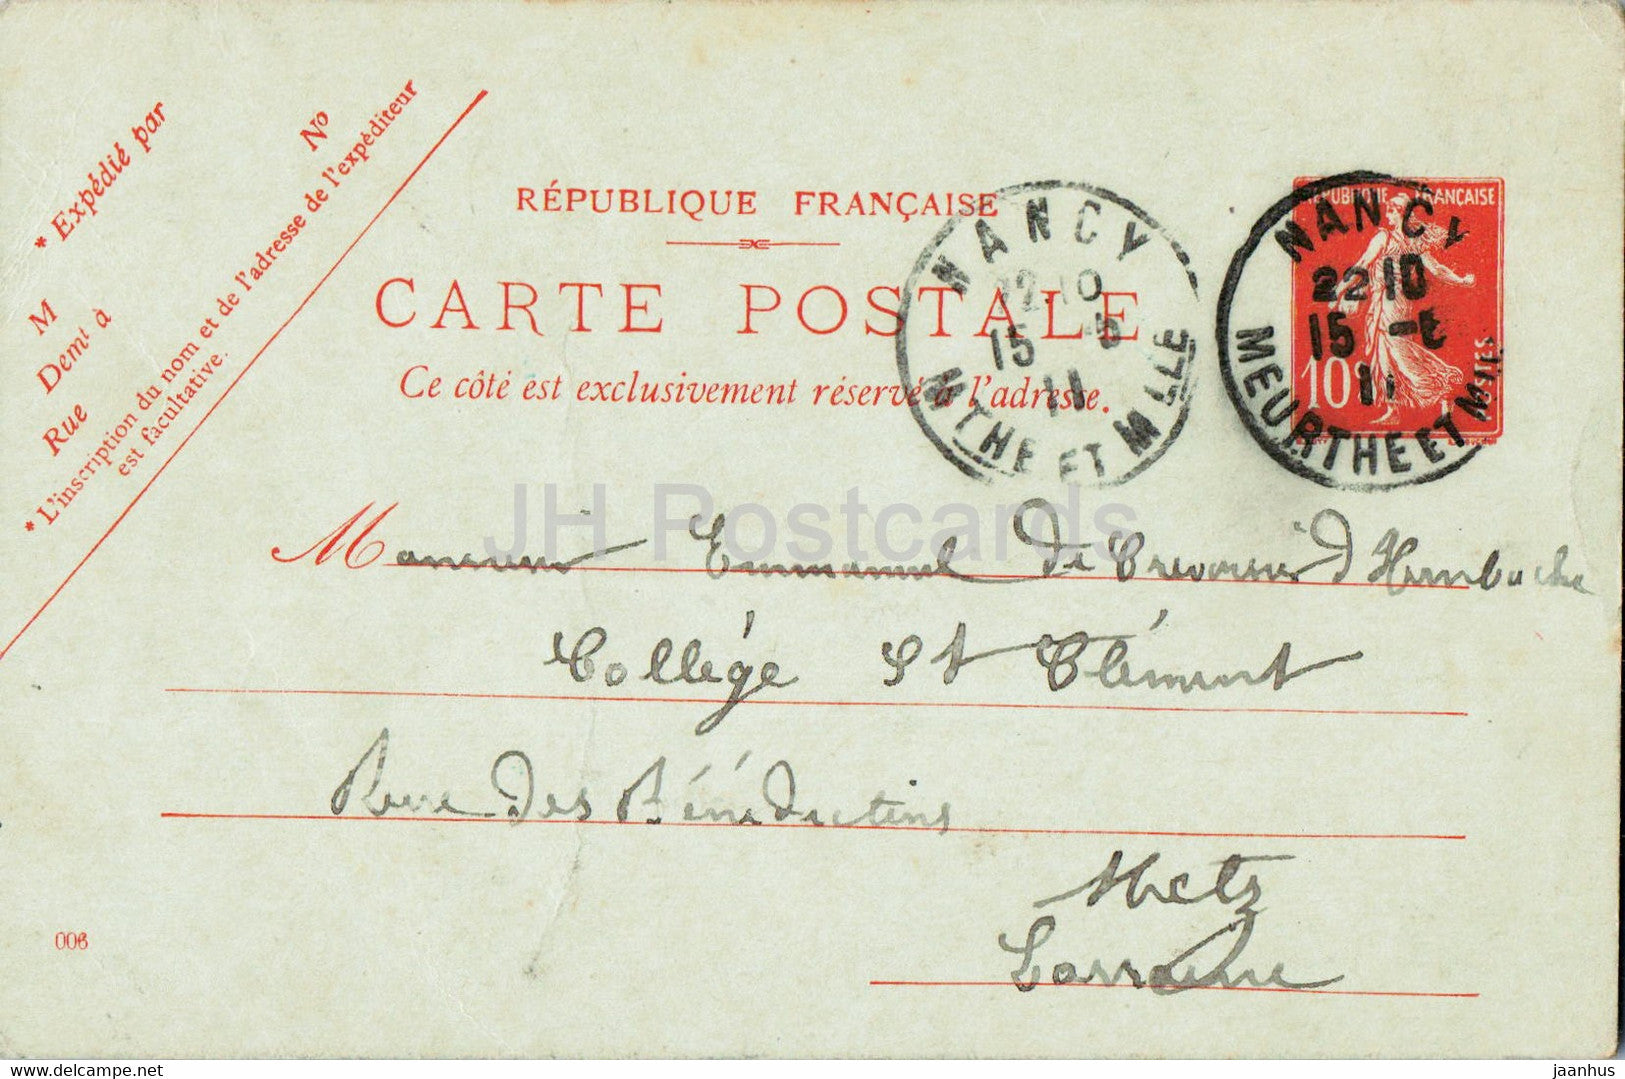 * Expédié par
M
N°
Demt à
Rue
* L'inscription du nom et de l'adresse de l'expéditeur
est facultative.
RÉPUBLIQUE FRANÇAISE
CARTE POSTALE
Ce côté est exclusivement réservé à l'adresse.
NANCY
22 10
15 -5
11
MTHE ET MLLE
REPUBLIQUE FRANÇAISE
10c
POSTES
NANCY
22 10
15 -5
11
MEURTHE ET M
Monsieur Emmanuel de Crevoisier d'Hurbache
Collége St Clément
Rue des Bénédictins
Metz
Lorraine
006
JH Postcards
jaanhus